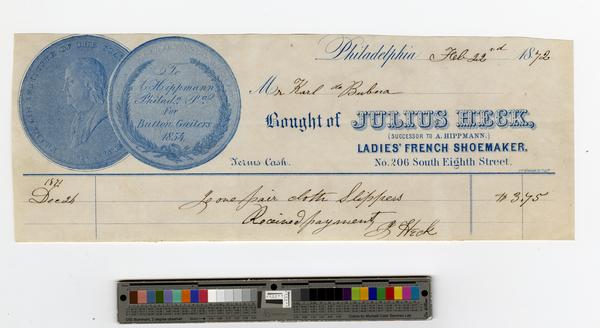 Philadelphia Feb 22nd 1872
To
A. Hippmann
Philada. Pa.
For
Button Gaiters
1854.
Mr Karl de Bubna
Bought of JULIUS HECK,
(SUCCESSOR TO A. HIPPMANN.)
LADIES' FRENCH SHOEMAKER,
Terms Cash. No. 206 South Eighth Street.
1871
Dec 26 To one pair cloth Slippers $3.75
Received payment
J Heck